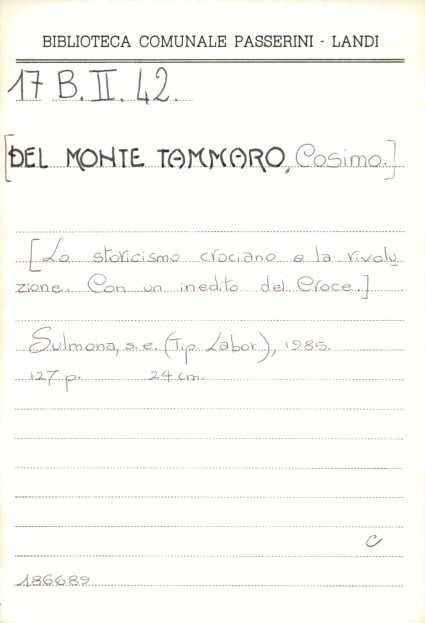 BIBLIOTECA COMUNALE PASSERINI - LANDI
17 B. II. 42.
[DEL MONTE TAMMARO, Cosimo.]
[Lo storicismo crociano e la rivolu
zione. Con un inedito del Croce.]
Sulmona, s.e. (Tip Labor), 1985.
127 p. 24 cm.
C
186689